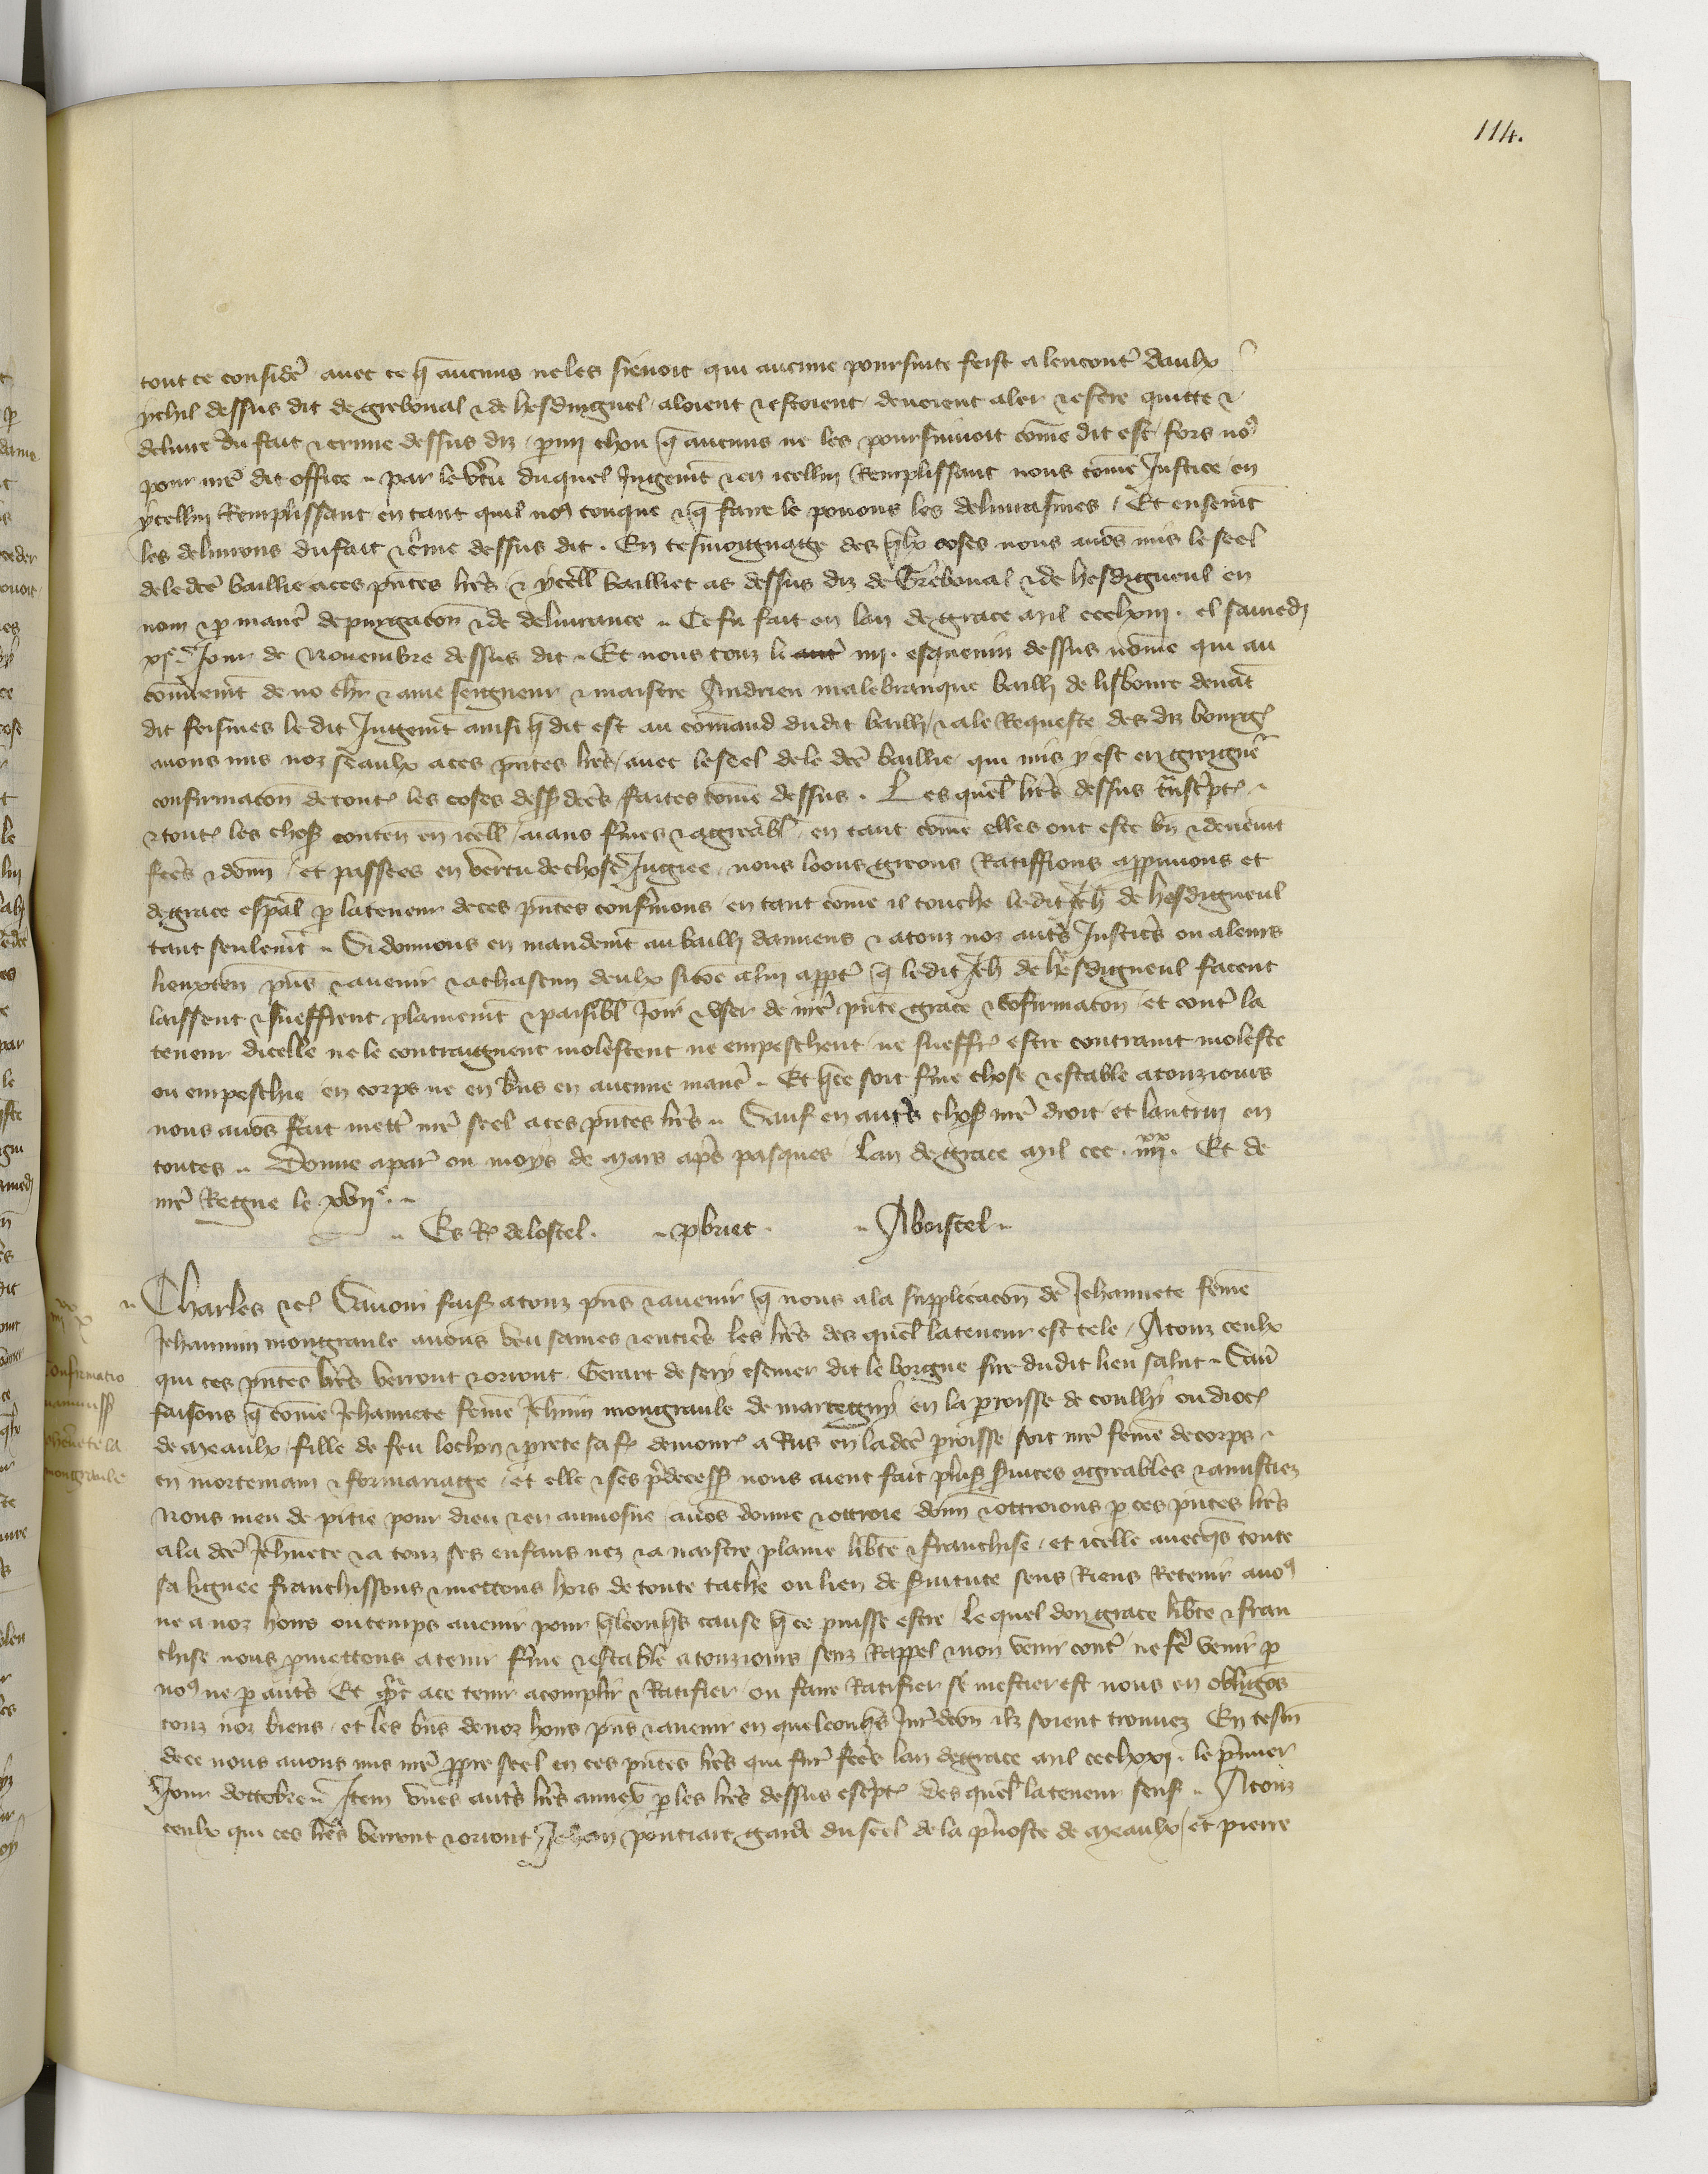 114.
tout ce considere avec ce q̄ aucuns ne les sievoit qui aucune poursuite feist a lencont̄ daulx
ychil dessus dit de grebonal ⁊ de hesdinguel aloient ⁊ estoient devoient aler ⁊ estre quitte ⁊
delivre du fait ⁊ crime dessus diz p̄mi chou q̄ aucuns ne les poursuivoit cōme dit est fors noꝰ
pour n̄re dit office par le v̄tu duquel jugem̄t ⁊ en icellui Remplissant nous cōme Justice en
ycellui Remplissant en tant quil noꝰ touque ⁊ q̄ faire le povons les delivrasmes Et ensem̄t
les delivrons du fait ⁊ c̄me dessus dit . En tesmoignage des q̄lx coses nous avōs mis le seel
de le dc̄e baillie a ces p̄ntes l̄res ⁊ ycell̄ bailliet as dessus diz de Grebonal ⁊ de hesdigneul en
nom ⁊ p̄ manē de purgacōn ⁊ de delivrance Ce fu fait en lan de grace mil ccclxiii . el samedi
xi.e Jour de Novembre dessus dit Et nous touz le iiii . eschevin dessus nōme qui au
cōmem̄t de no ch̄r ⁊ ame seigneur ⁊ maistre Andrieu malebranque bailli de lisbourc devāt
dit feismes le dit Jugem̄t ainsi q̄ dit est au cōmand dudit bailli ⁊ a le Requeste des diz bourgꝭ
avons mis noz seaulx a ces p̄ntes l̄res avec le seel de le dc̄e baillie qui mis y est en greigneʳ
confirmacōn de toutꝭ les coses dess̄ dc̄es faites cōme dessus . Les quel̄x l̄res dessus t̄nsc̄ptꝭ
⁊ toutꝭ les chos̄ conteñ en icell̄ aians f̄mes ⁊ agreabl̄ en tant cōme elles ont este bn̄ ⁊ devem̄t
fc̄es ⁊ donn̄ et passees en vertu de chose Jugiee nous loons greons Ratiffions appvuons et
de grace esp̄al p̄ la teneur de ces p̄ntes conf̄mons en tant cōme il touche ledit Jeh̄ de hesdigneul
tant seulem̄t Si donnons en mandem̄t au bailli damiens ⁊ a touz noz aut̄s Justic̄s ou a leurs
lieuxten̄ p̄ns ⁊ avenir ⁊ a chascun deulx si cōe a lui app̄t q̄ ledit Jeh̄ de hesdigneul facent
laissent ⁊ sueffrent plainem̄t ⁊ paisibl̄ Joir ⁊ user de n̄re p̄nte grace ⁊ cōfirmacōn et cont̄ la
teneur dicelle ne le contraignent molestent ne empeschent ne sueffrꝭ estre contraint moleste
ou empeschie en corps ne en b̄ns en aucune manē . Et q̄ ce soit f̄me chose ⁊ estable a touzjours
nous avōs fait mett̄ n̄re seel a ces p̄ntes l̄res Sauf en aut̄s chos̄ n̄re droit et lautrui en
toutes Donne a par̄ ou moys de Mars ap̄s pasques Lan de grace mil ccc . iiiixx . Et de
n̄re Regne le xvii.e
Es Rꝭ de lostel . p briet . Aboistel
Charles ⁊c̄ Savoir fais̄ a touz p̄ns ⁊ avenir q̄ nous a la supplicacōn de Jehannete fem̄e
Jehannin montgraule avons veu saines ⁊ entier̄s les l̄res des quel̄x la teneur est tele . A touz ceulx
qui ces p̄ntes l̄res verront ⁊ orront Gerart de sery escuier dit le borgne sire dudit lieu salut Sav̄
faisons q̄ cōme Jehannete fem̄e Jehn̄in montgraule de martegny en la p̄roisse de coully ou diocꝭ
de Meaulx fille de feu lochon ⁊ p̄rete sa fꝭ demourꝭ a Rus en la dc̄e p̄roisse soit n̄re fem̄e de corps ⁊
en mortemain ⁊ formariage et elle ⁊ ses p̄decess̄ nous aient fait plus̄ s̄vices agreables ⁊ amistiez
Nous meu de pitie pour dieu ⁊ en aumosne avōs donne ⁊ ottroie donn̄ ⁊ ottroions p̄ ces p̄ntes l̄res
a la dc̄e Jehn̄ete ⁊ a touz ses enfans nez ⁊ a naistre plaine lib̄te ⁊ franchise et icelle avecq̄s toute
sa lignee franchissons ⁊ mettons hors de toute tache ou lien de s̄vitute sens Riens Retenir a noꝰ
ne a noz hoirs ou temps avenir pour q̄lconq̄s cause q̄ ce puisse estre le quel don grace lib̄te ⁊ fran
chise nous p̄mettons a tenir f̄me ⁊ estable a touzjours senz Rappel ⁊ non venir cont̄ ne f̄e venir p̄
noꝰ ne p̄ aut̄s Et q̄nt a ce tenir acomplir ⁊ Ratifier ou faire Ratifier se mestier est nous en obligōs
touz noz biens et les b̄ns de noz hoirs p̄ns ⁊ avenir en quelconq̄s Jurꝭdcōn ilz soient trouvez En tesm̄
de ce nous avons mis n̄re p̄pre seel en ces p̄ntes l̄res qui fur̄ fc̄es lan de grace mil ccclxxi . le p̄mier
Jour doctobre Item unes aut̄s l̄res annex̄ p̄ les l̄res dessus esc̄ptꝭ des quel̄x la teneur sens̄ . A touz
ceulx qui ces l̄res verront ⁊ orront Jehan pontiart garde du seel de la p̄voste de Meaulx et pierre
iiiixx x
Confirmatio
manumiss̄
Jehn̄ete la
montgraule